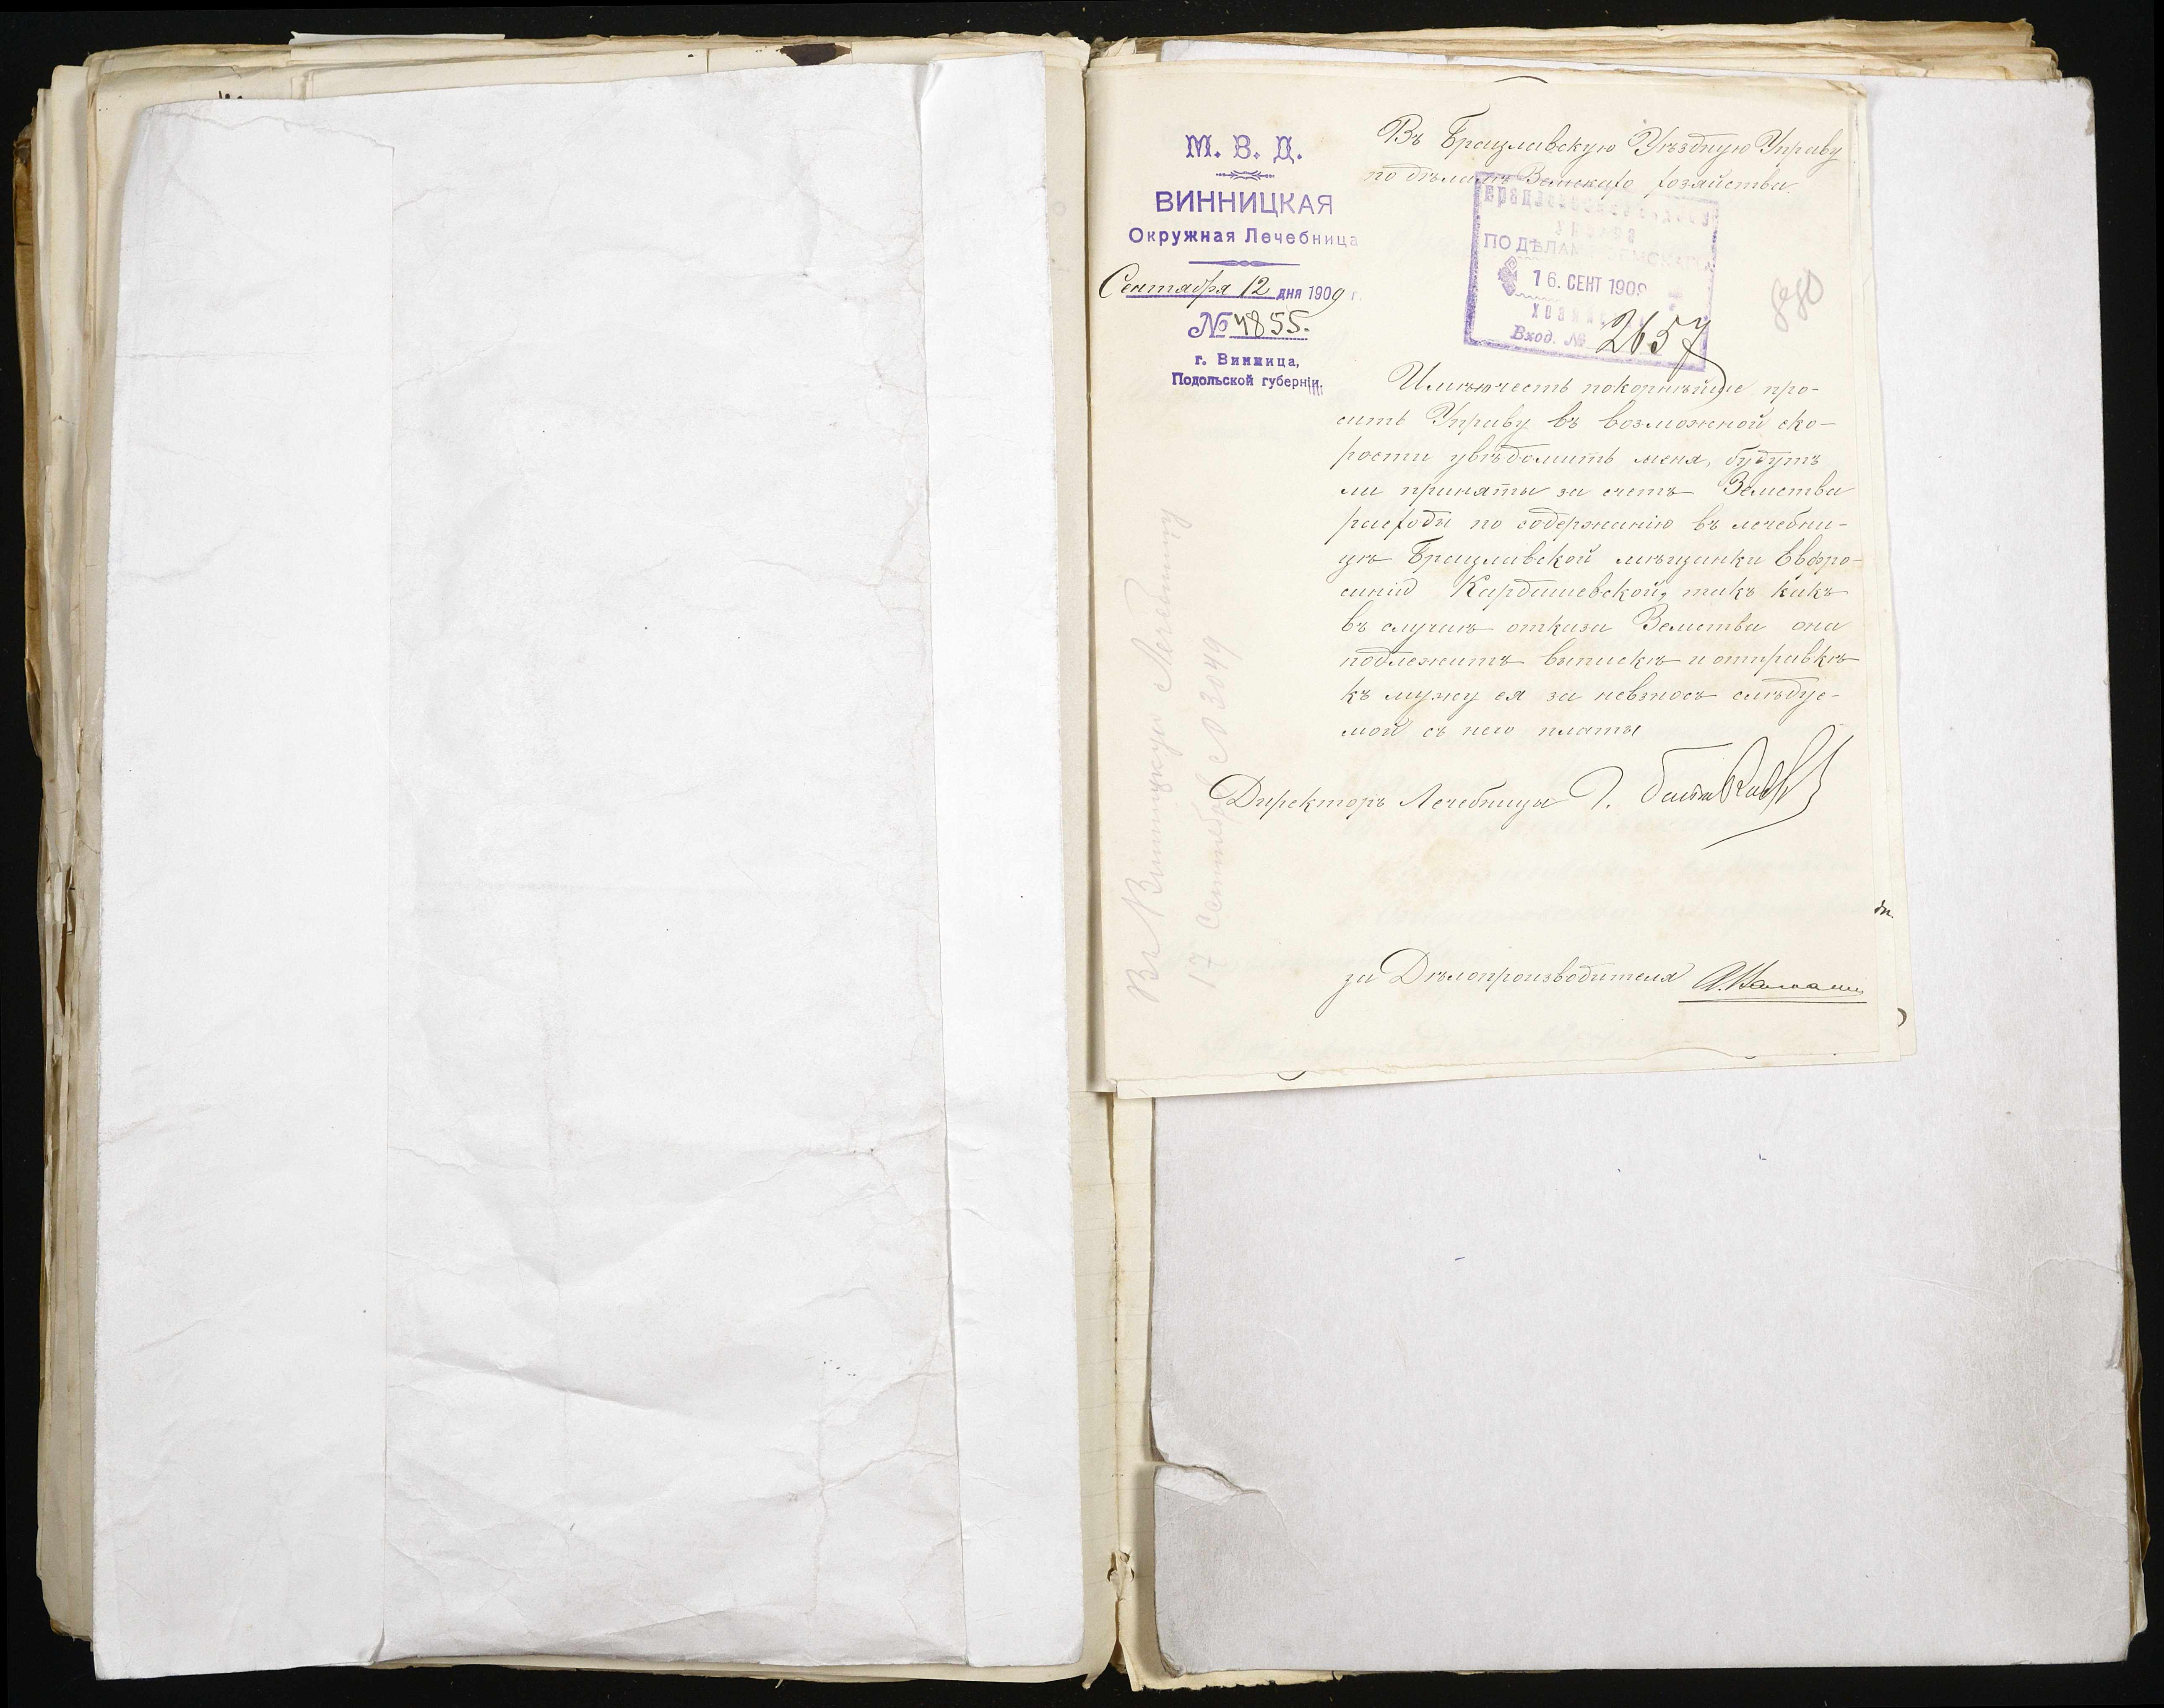 М. В. Д.
ВИННИЦКАЯ
Окружная Лечебница
Сентября 12 дня 1909 г.
№ 4855.
г. Винница,
Подольской губерніи.
Въ Брацлавскую Уѣздную Управу
по дѣламъ Земскаго хозяйства
ПО ДѢЛАМ ЗЕМСКАГО
16. СЕНТ 1909
Вход. № 2657
Имѣю честь покорнѣйше про-
сить Управу въ возможной ско-
рости увѣдомить меня, будутъ
ли приняты за счетъ Земства
расходы по содержанію въ лечебни-
цѣ Брацлавской мѣщанки Евфро-
синіи Кардашевской, такъ какъ
въ случаѣ отказа Земства она
подлежитъ выпискѣ и отправкѣ
къ мужу ея за невзносъ слѣдуе-
мой съ него платы
Директоръ Лечебницы
за Дѣлопроизводителя
Въ Винницкую Лечебницу
17 Сентября № 3049